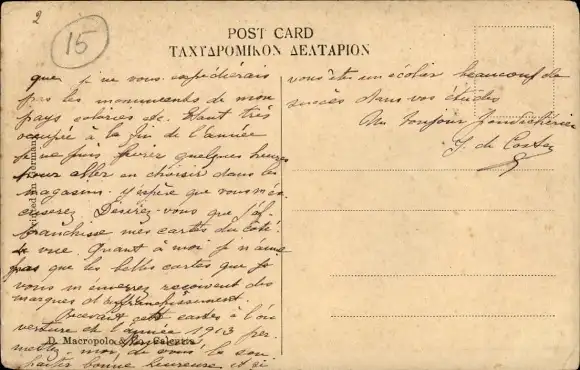 2
15
POST CARD
ΤΑΧΥΔΡΟΜΙΚΟΝ ΔΕΛΤΑΡΙΟΝ
que je ne vous expédierais
pas les monuments de mon
pays coloriés etc. Etant très
occupée à la fin de l'année
je ne puis livrer quelques heures
pour aller en choisir dans les
magasins. j'espère que vous m'ex-
cuserez. Désirez-vous que j'af-
franchisse mes cartes du côté
de vue. Quant à moi je n'aime
pas que les belles cartes que je
vous m'enverrez reçoivent des
marques d'affranchissement.
Recevant cette cartes à l'ou
verture et l'année 1913 per
mettez-moi de vous la sou
haiter bonne heureuse et si
vous êts un écolier beaucouf de
succès dans vos études
J. de Costa
Printed in Germany
D. Macropolo & Co. Calcutta